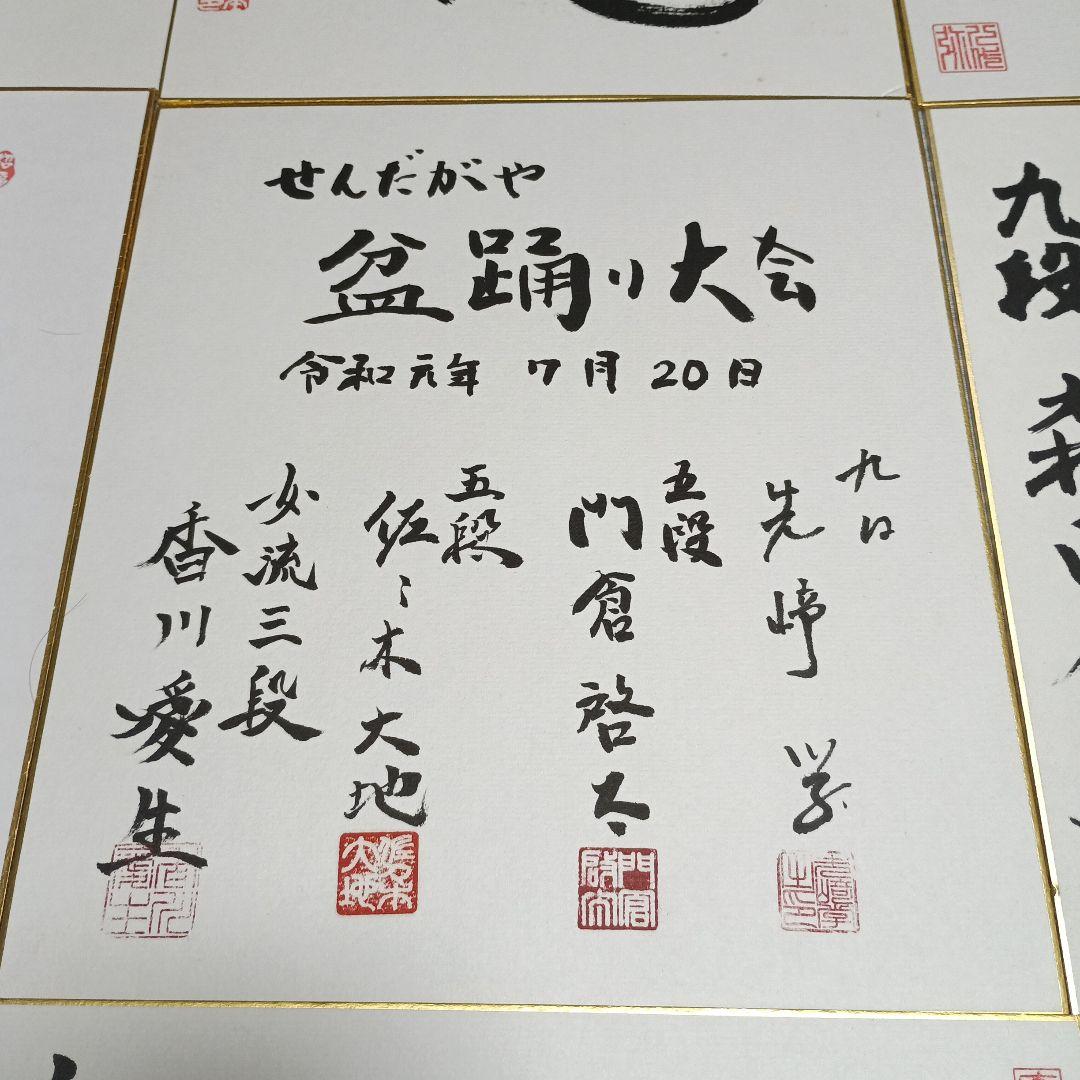 せんだがや
盆踊り大会
令和元年 7月20日
九段
先崎 学
五段
門倉啓太
五段
佐々木大地
女流三段
香川愛生
九段